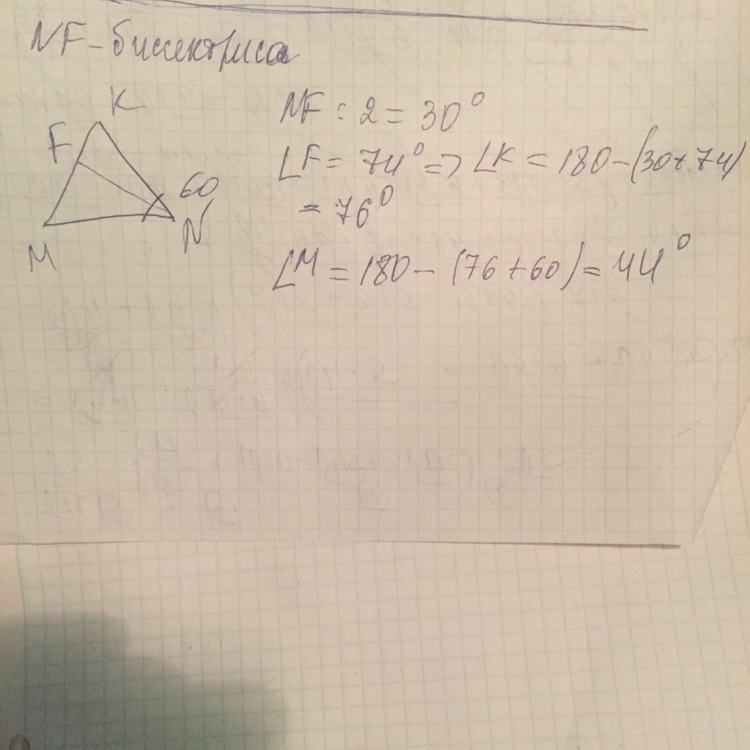 NF - биссектриса
K
F
60
N
M
NF : 2 = 30°
∠F = 74° => ∠K = 180 - (30 + 74)
= 76°
∠M = 180 - (76 + 60) = 44°